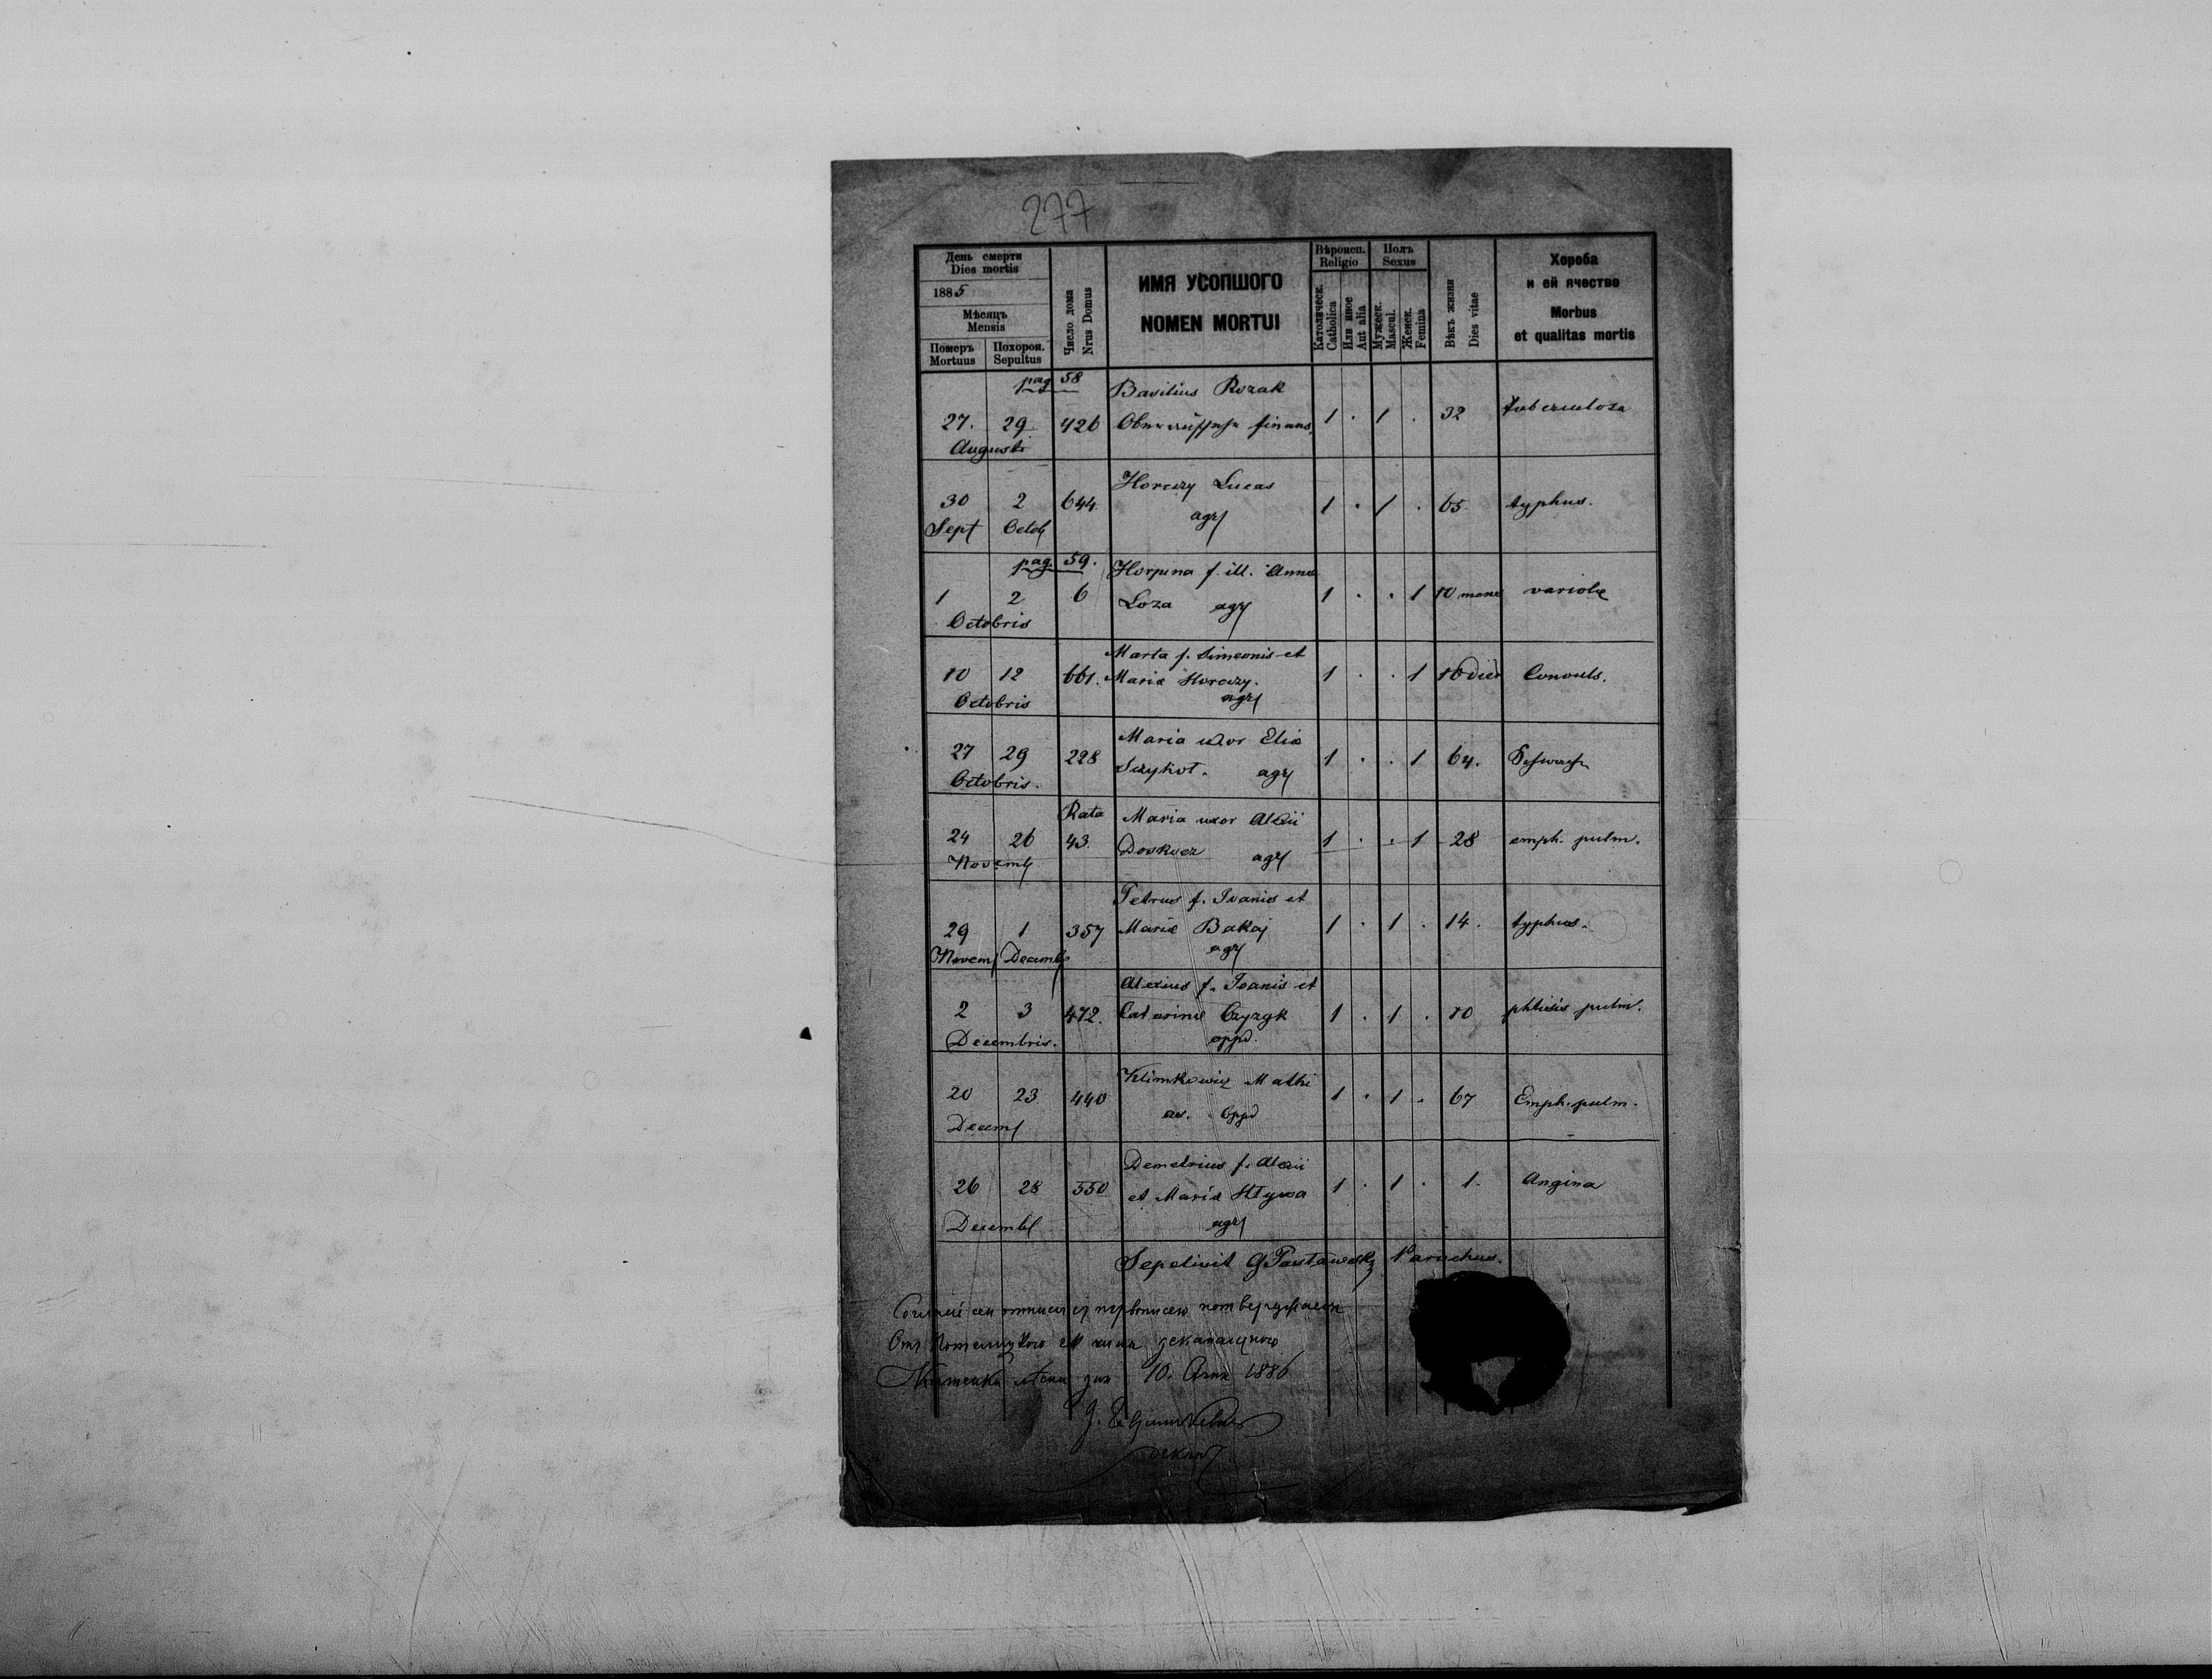 277
День смерти
Dies mortis
1885
Мѣсяцъ
Mensis
Померъ Похорон.
Mortuus Sepultus
Число дома
Nrus Domus
ИМЯ УСОПШОГО
NOMEN MORTUI
Вѣроисп.
Religio
Католическ.
Catholica
Или иное
Aut alia
Полъ
Sexus
Мужеск.
Mascul.
Женск.
Femina
Вѣкъ жизни
Dies vitae
Хороба
и ей ячество
Morbus
et qualitas mortis
pag 58 Basilius Rozak
27. 29 426 finans. 1 . 1 . 32 tuberculosa
Augusti
Horczy Lucas
30 2 644 agr 1 . 1 . 65 typhus.
Sept Octob
pag. 59. Horpina f. ill. Anna
1 2 6 Loza agr 1 . . 1 10 mens variolæ
Octobris
Marta f. Simeonis et
10 12 661. Mariæ Horczy. 1 . . 1 10 dies Convuls.
Octobris agr
Maria uxor Eliæ
27 29 228 agr 1 . . 1 64.
Octobris.
Rata Maria uxor Alexii
24 26 43. Doskocz agr 1 . . 1 28 emph. pulm.
Novemb
Petrus f. Ivanis et
29 1 357 Mariæ Bakaj 1 . 1 . 14. typhus.
Novem Decemb agr
Alexius f. Joanis et
2 3 472. Catarinæ 1 . 1 . 10 phtisis pulm.
Decembris. oppd.
Klimkowicz Mathi
20 23. 440 as. Oppd 1 . 1 . 67 Emph. pulm.
Decem
Demetrius f. Alexii
26 28 550 et Mariæ 1 . 1 . 1. Angina
Decemb agr
Sepelivit Parochus.
10. 1886